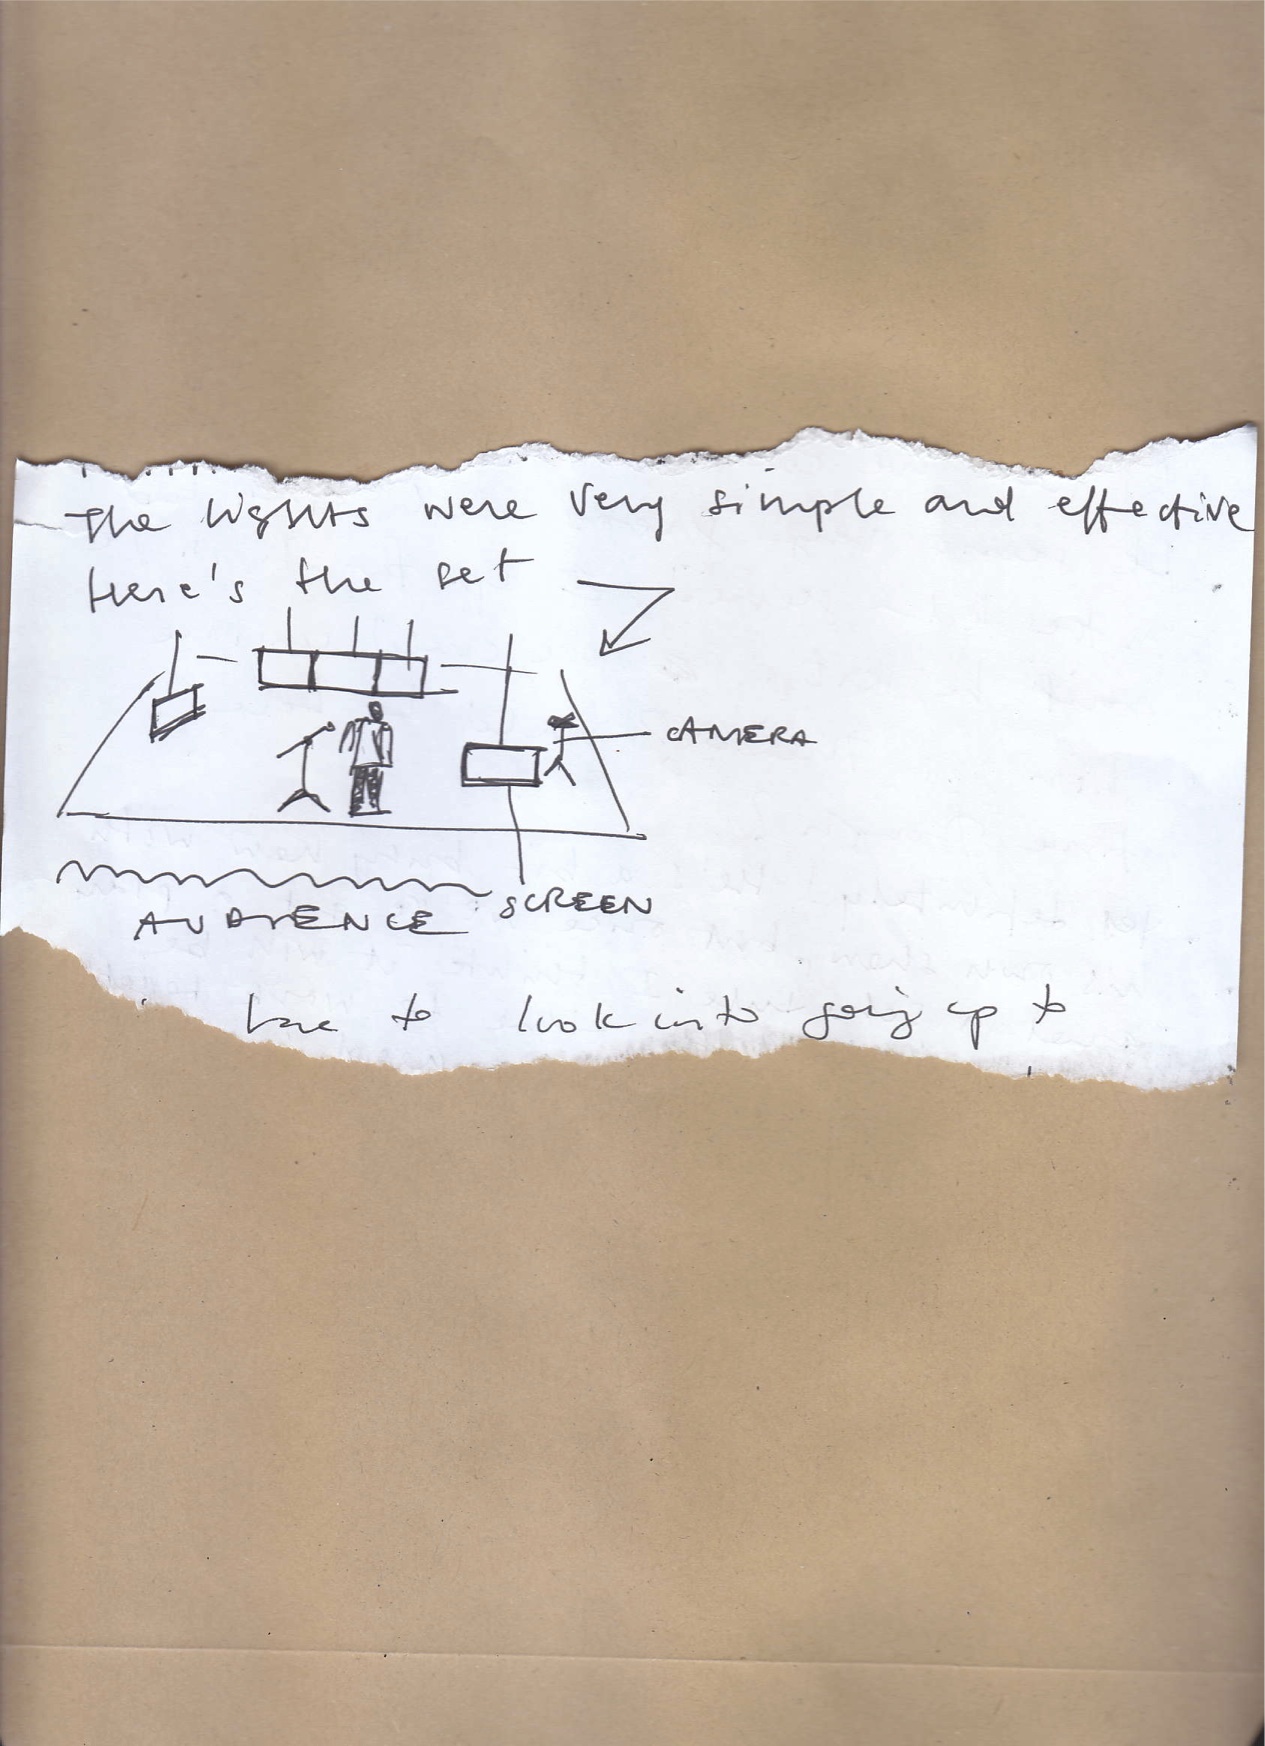 The lights were very simple and effective
Here's the set
CAMERA
SCREEN
AUDIENCE
have to look into going up to